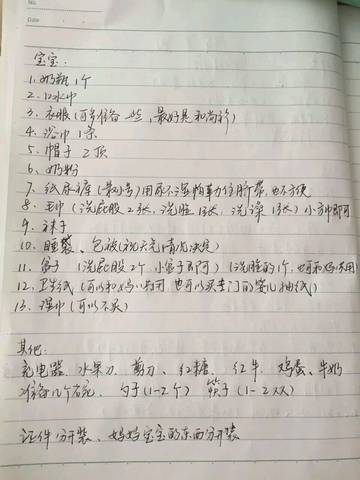 No.
Date
宝宝:
1. 奶瓶 1个
2. 口水巾
3. 衣服(可多准备一些,最好是和尚衫)
4. 浴巾 1条
5. 帽子 2顶
6. 奶粉
7. 纸尿裤(最小号)用尿不湿怕革力住脐带,也不方便
8. 毛巾(洗屁股2张,洗脸1张,洗澡1张)小方巾即可
9. 袜子
10. 睡袋、包被(视天气情况决定)
11. 盆子(洗屁股2个,小盆子即可)(洗脸的1个,也可和妈共用)
12. 卫生纸(可以和妈妈共用 也可以买专门的婴儿抽纸)
13. 湿巾(可以不买)
其他:
充电器、水果刀、剪刀、红糖、红牛、鸡蛋、牛奶
准备几个碗、勺子(1-2个) 筷子(1-2双)
证件分开装、妈妈宝宝的东西分开装